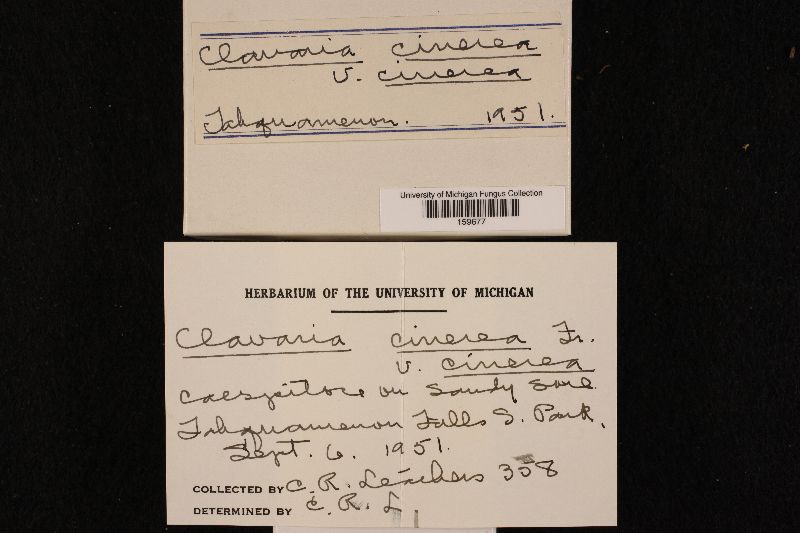 Clavaria cinerea
v. cinerea
Tahquamenon. 1951.
University of Michigan Fungus Collection
159677
HERBARIUM OF THE UNIVERSITY OF MICHIGAN
Clavaria cinerea Fr.
v. cinerea
caespitose on sandy soil
Tahquamenon Falls S. Park.
Sept. 6. 1951.
COLLECTED BY C. R. Leathers 358
DETERMINED BY C. R. L